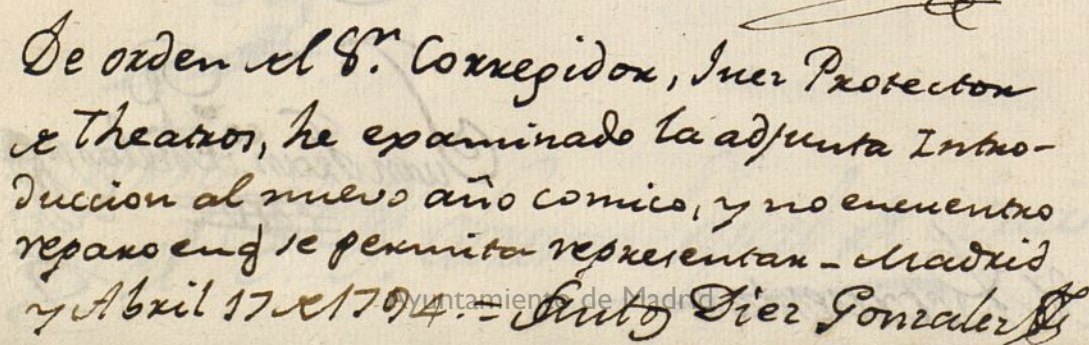 De orden del Sr. Corregidor, Juez Protector
de Theatros, he examinado la adjunta Intro-
duccion al nuevo año comico, y no encuentro
reparo en q se permita representar - Madrid
y Abril 17 de 1794. = Santos Diez Gonzalez
Ayuntamiento de Madrid